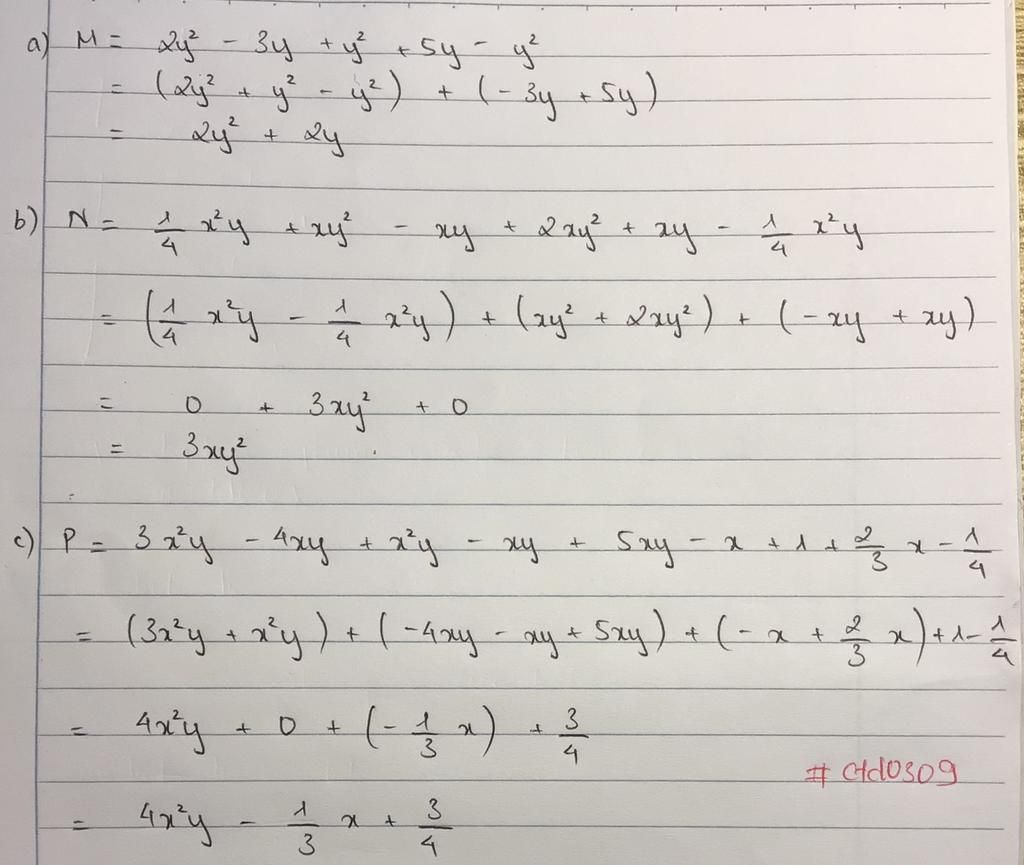 a) M = 2y² - 3y + y² + 5y - y²
= (2y² + y² - y²) + (-3y + 5y)
= 2y² + 2y
b) N = 1/4 x²y + xy² - xy + 2xy² + xy - 1/4 x²y
= (1/4 x²y - 1/4 x²y) + (xy² + 2xy²) + (-xy + xy)
= 0 + 3xy² + 0
= 3xy²
c) P = 3x²y - 4xy + x²y - xy + 5xy - x + 1 + 2/3 x - 1/4
= (3x²y + x²y) + (-4xy - xy + 5xy) + (-x + 2/3 x) + 1 - 1/4
= 4x²y + 0 + (-1/3 x) + 3/4
# ctd0309
= 4x²y - 1/3 x + 3/4